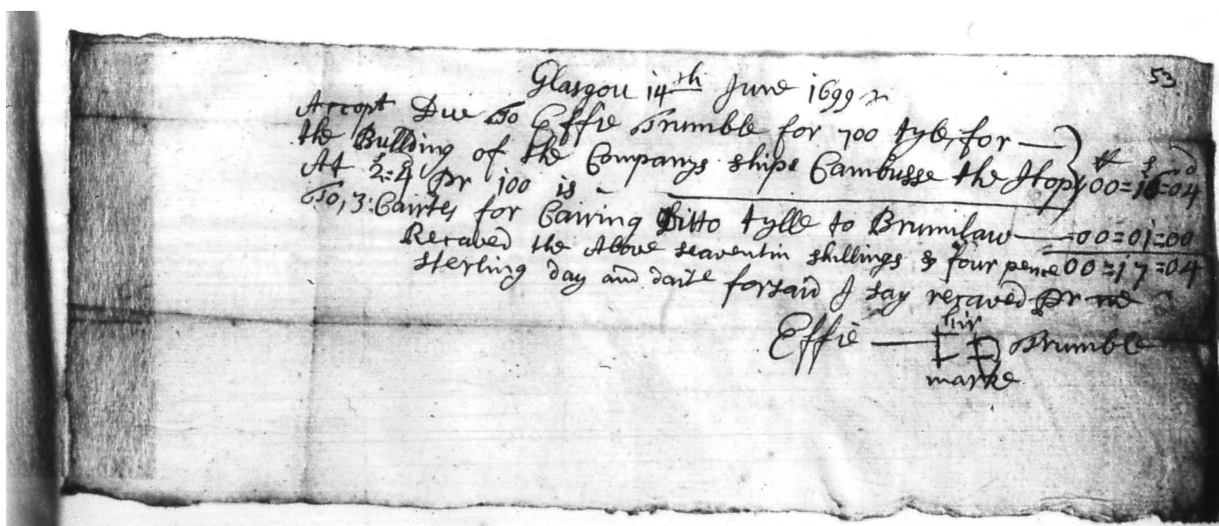 53
Glasgou 14th June 1699
Accopt Due To Effie Trumble for 700 tyle, for
the Bullding of the Companys ships Cambusse the Hope
At 2=4 pr 100 is — 00=16=04
To, 3: Cairtes for Cairing Ditto tylle to Brumilaw — 00=01=00
Recaved the Above seaventin shillings & four pence 00=17=04
sterling day and daite forsaid I say recaved pr me
Effie — hir Trumble
marke